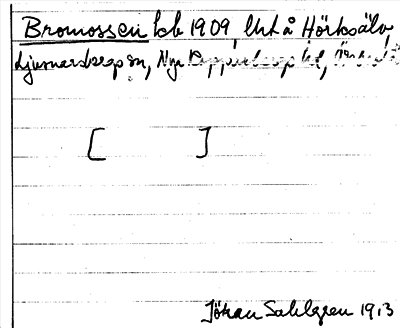 Bromossen lsb 1909, Urt å Hörksälv,
Ljusnarsbergs sn, Nya Kopparbergs hd,
[ ]
Jöran Sahlgren 1913